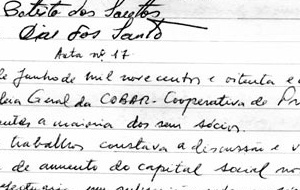 Batista dos Santos
Dias dos Santo
Acta nº 17
de Junho de mil novecentos e oitenta e
Geral da COBAR-Cooperativa de Pr
a maioria dos seus sócios.
trabalhos constava a discussão e v
de aumento do capital social no